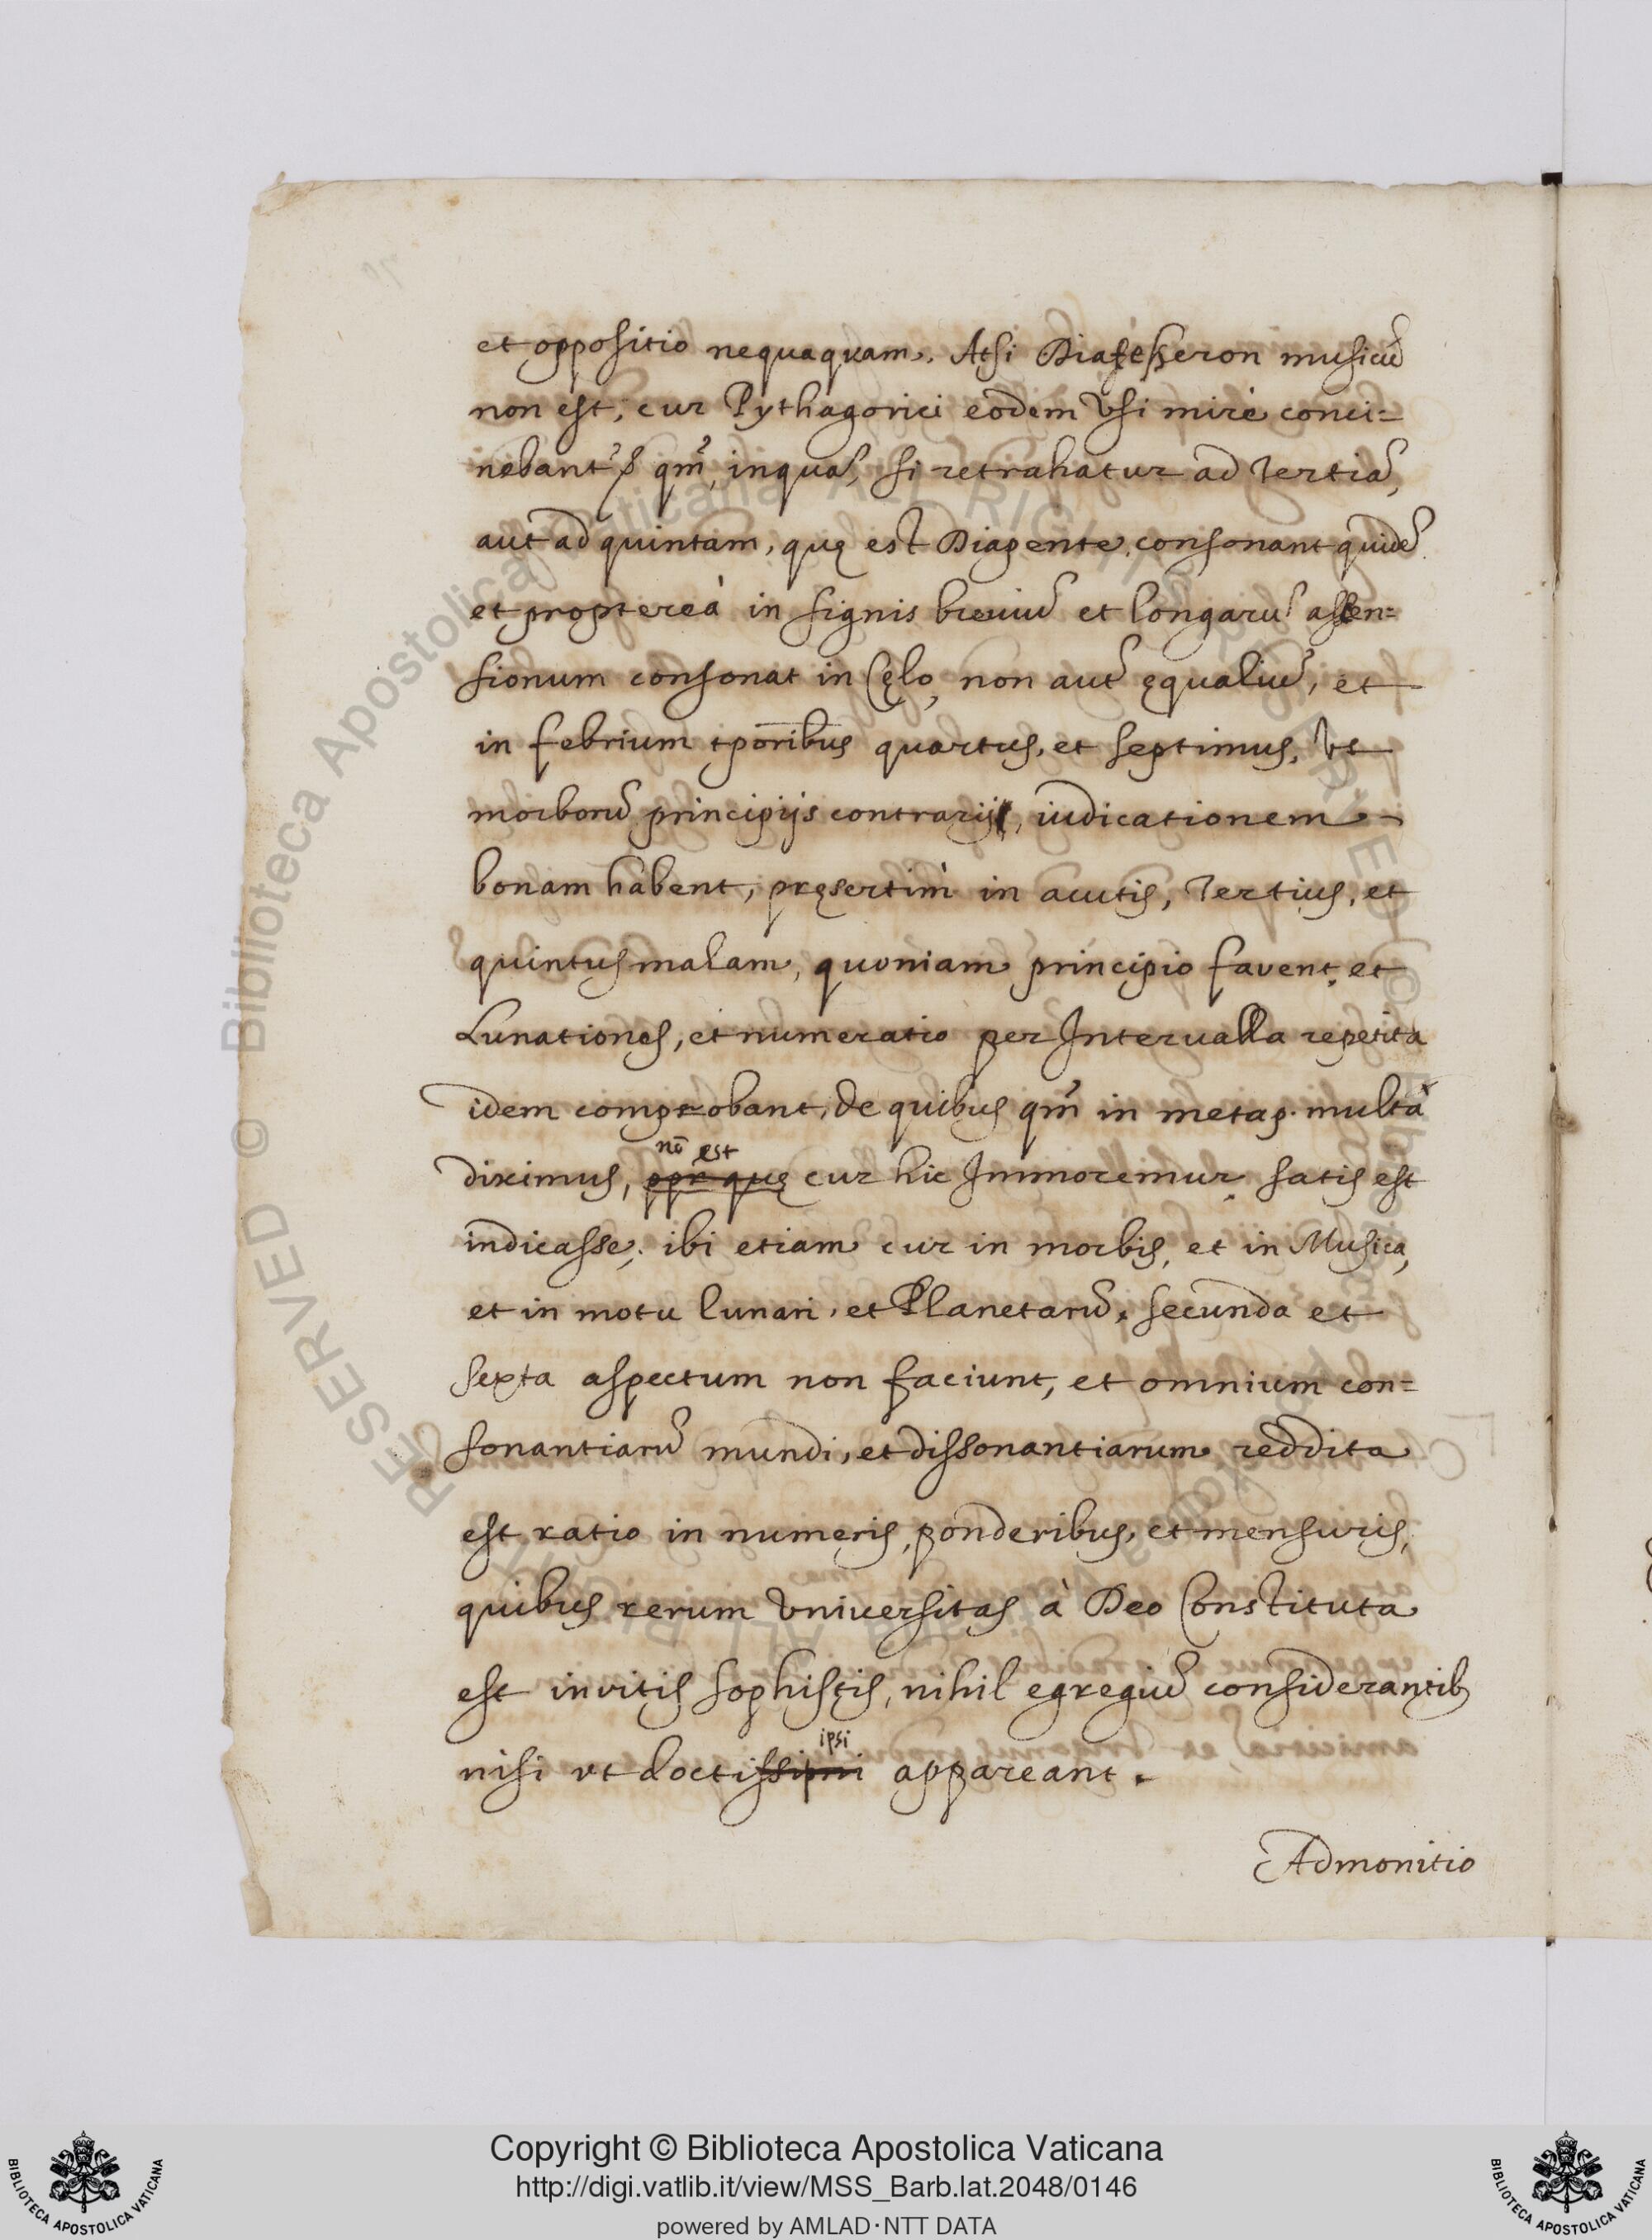 et oppositio nequaquam. Atsi Diatesseron musicũ
non est, cur Pythagorici eodem vsi mirè conci=
nebant? qm̃, inquã, si retrahatur ad tertiã,
aut ad quintam, quę est Diapente, consonant quidẽ
et proptereà in signis breuiũ et longarũ ascen=
sionum consonat in Cęlo, non autẽ ęqualiũ, et
in febrium tp̄oribus quartus, et septimus, Vt
morborũ principijs contrarij, iudicationem
bonam habent, pręsertim in acutis, tertius, et
quintus malam, quoniam principio favent, et
Lunationes, et numeratio per Interualla repetita
idem comprobant, de quibus qm̃ in metap. multà
nō est
diximus, ppr quę cur hic Immoremur satis est
indicasse; ibi etiam cur in morbis, et in Musica,
et in motu lunari, et Planetarũ, secunda et
sexta aspectum non faciunt, et omnium con=
sonantiarũ mundi, et dissonantiarum reddita
est ratio in numeris, ponderibus, et mensuris,
quibus rerum vniuersitas à Deo Constituta
est invitis sophistis, nihil egregiũ considerantib
ipsi
nisi vt doctissimi appareant.
Admonitio
© Biblioteca Apostolica Vaticana ALL RIGHTS RESERVED
Copyright © Biblioteca Apostolica Vaticana
http://digi.vatlib.it/view/MSS_Barb.lat.2048/0146
powered by AMLAD·NTT DATA
BIBLIOTECA APOSTOLICA VATICANA
BIBLIOTECA APOSTOLICA VATICANA